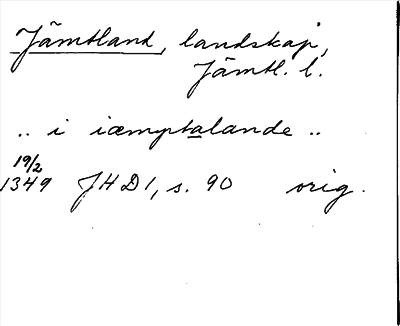 Jämtland, landskap,
Jämtl. l.
.. i iæmptalande ..
19/2
1349 JHD1, s. 90 orig.